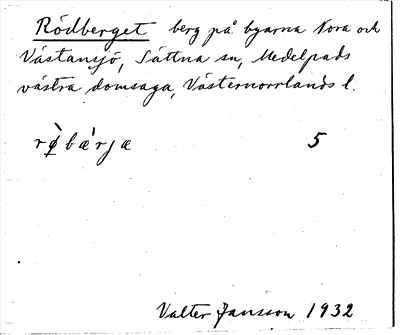 Rödberget berg på byarna Nora och
Västansjö, Sättna sn, Medelpads
västra domsaga, Västernorrlands l.
rø̀bæ̀rjæ 5
Valter Jansson 1932